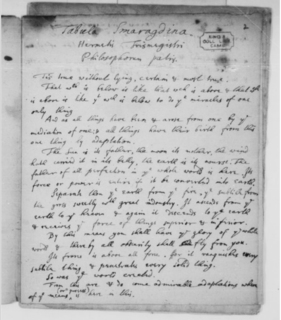 Tabula Smaragdina.
Hermetis Trismegistri
Philosophorum patris.
Tis true without lying, certain & most true.
That wch is below is like that wch is above & that wch
is above is like yt wch is below to do ye miracles of one
only thing
And as all things have been & arose from one by ye
mediation of one: so all things have their birth from this
one thing by adaptation.
The Sun is its father, the moon its mother, the wind
hath carried it in its belly, the earth is its nourse. The
father of all perfection in ye whole world is here. Its
force or power is entire if it be converted into earth.
Separate thou ye earth from ye fire, ye subtile from
the gross sweetly wth great industry. It ascends from ye
earth to ye heaven & again it descends to ye earth
& receives ye force of things superior & inferior.
By this means you shall have ye glory of ye whole
world & thereby all obscurity shall fly from you.
Its force is above all force. for it vanquishes every
subtile thing & penetrates every solid thing.
So was ye world created.
From this are & do come admirable adaptations whereof
of ye means is here in this.